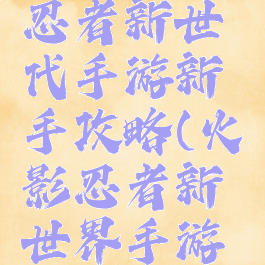 忍者新世
代手游新
手攻略(火
影忍者新
世界手游